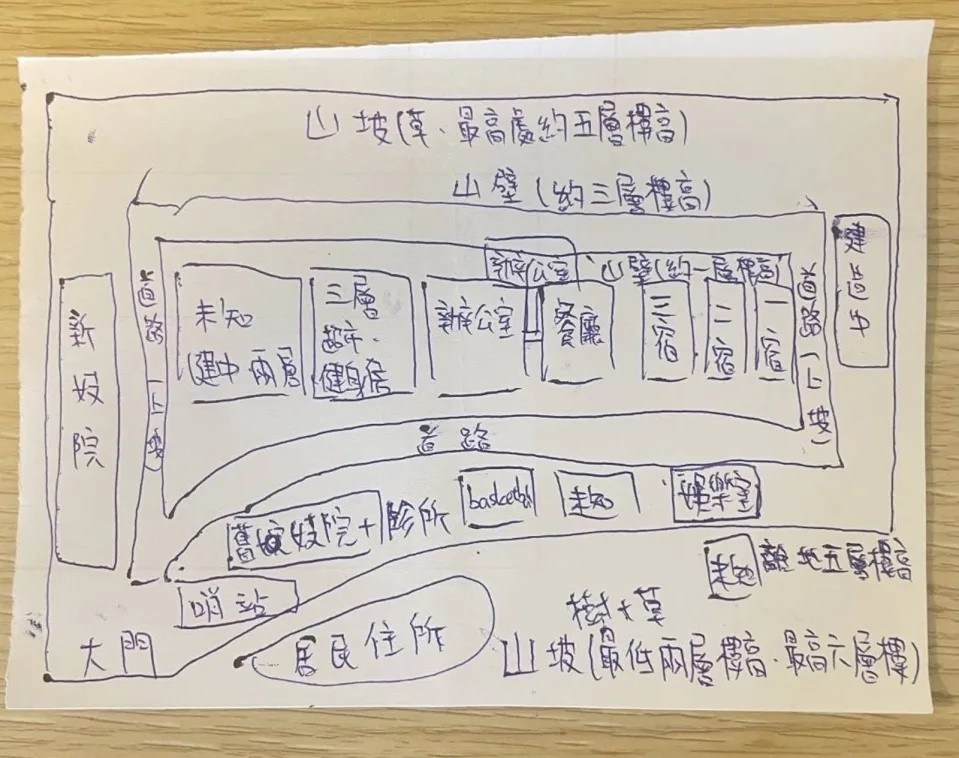 山坡(草、最高處約五層樓高)
山壁(約三層樓高)
建造中
辦公室
山壁(約一層樓高)
道路(下坡)
未知
建中 兩層
三層
超市、
健身房
辦公室
餐廳
三宿
二宿
一宿
道路(下坡)
新妓院
道路
basketball
未知
娛樂室
舊妓院+診所
未知
離地五層樓高
哨站
樹+草
大門
居民住所
山坡(最低兩層樓高、最高六層樓)